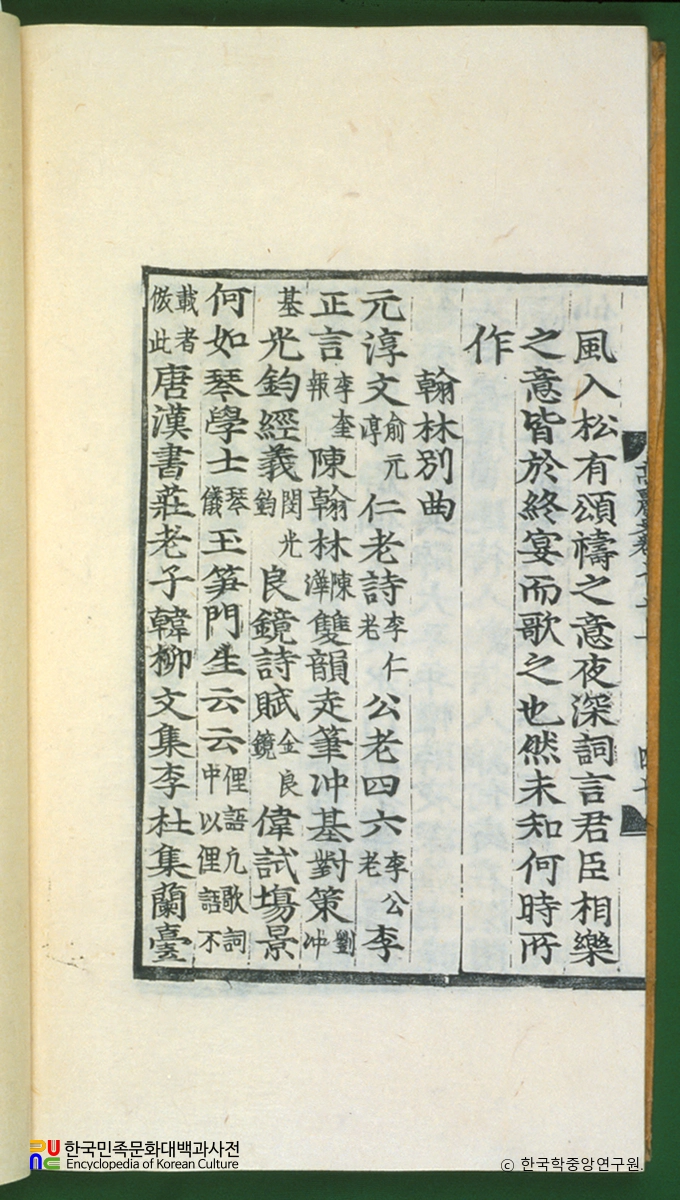 風入松有頌禱之意夜深詞言君臣相樂
之意皆於終宴而歌之也然未知何時所
作
翰林別曲
元淳文俞元淳仁老詩李仁老公老四六李公老李
正言李奎報陳翰林陳澕雙韻走筆冲基對策劉冲
基光鈞經義閔光鈞良鏡詩賦金良鏡偉試場景
何如琴學士琴儀玉笋門生云云俚語凡歌詞中以俚語不
載者倣此唐漢書莊老子韓柳文集李杜集蘭臺
한국민족문화대백과사전
Encyclopedia of Korean Culture
© 한국학중앙연구원